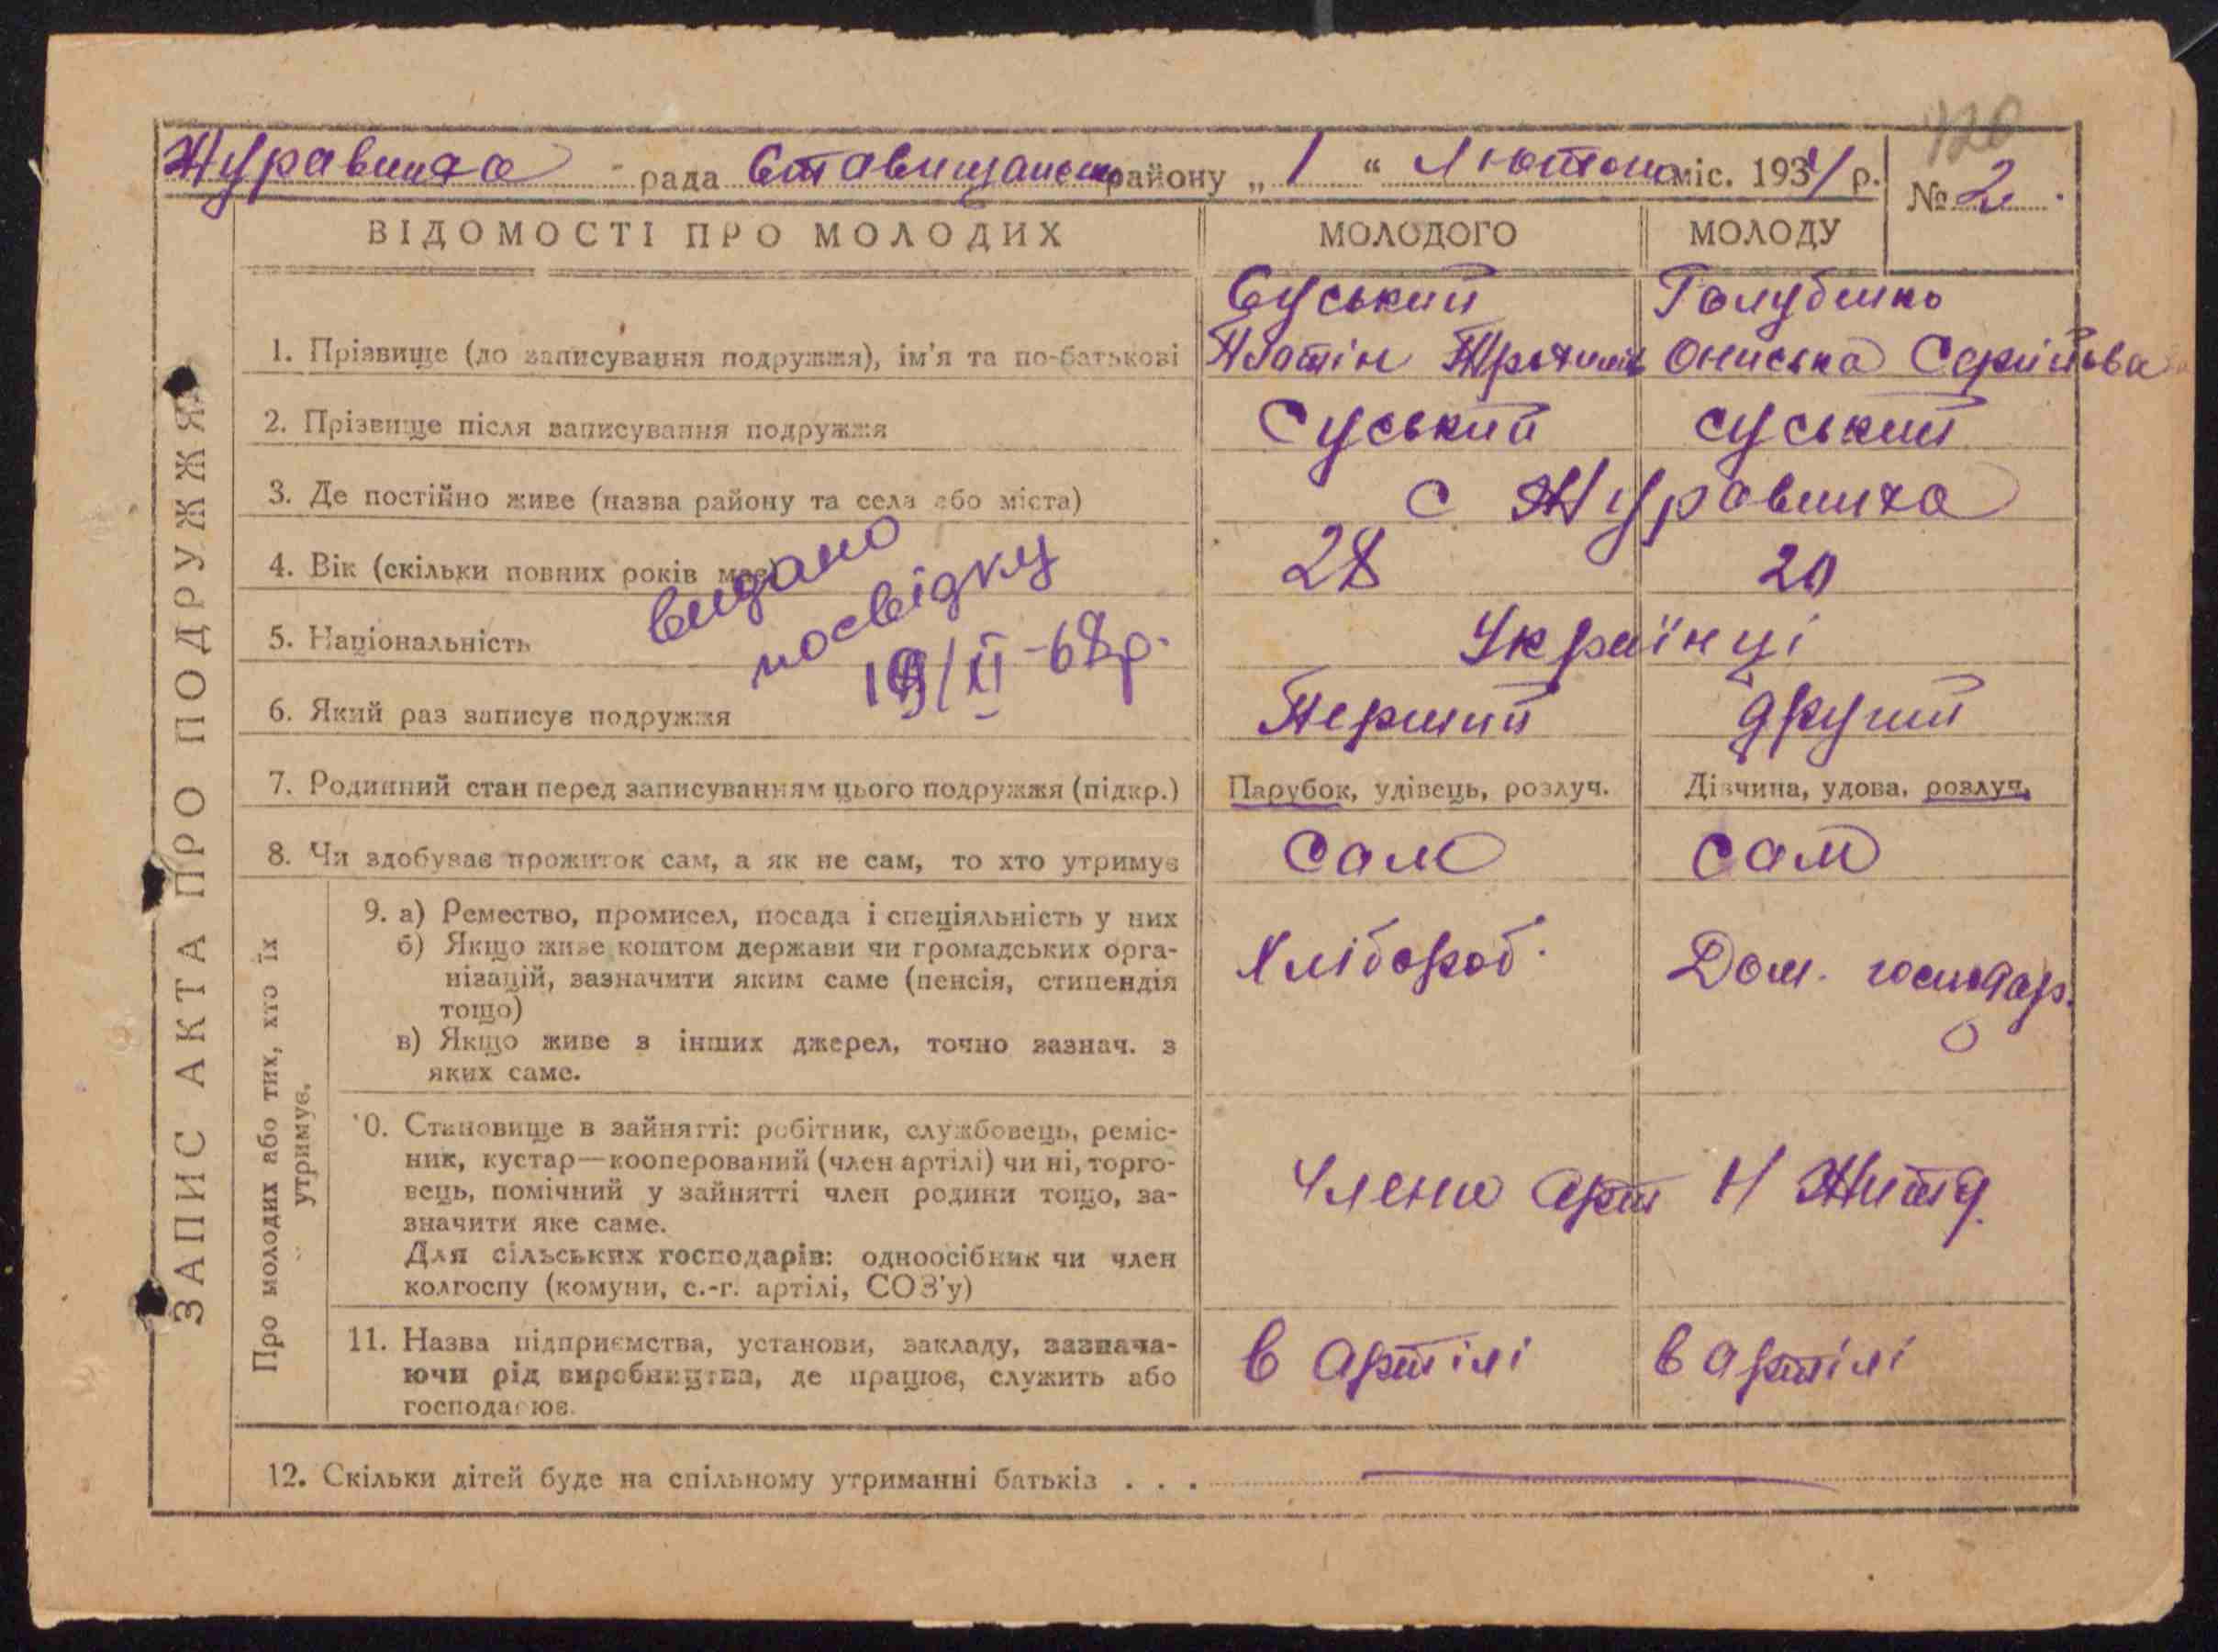 120
Журавлиха рада Ставищанськ району „ 1 “ Лютого міс. 1934 р. № 2.
ВІДОМОСТІ ПРО МОЛОДИХ МОЛОДОГО МОЛОДУ
Суський Голубенко
1. Прізвище (до записування подружжя), ім'я та по-батькові Ониська
2. Прізвище після записування подружжя Суський суський
3. Де постійно живе (назва району та села або міста) с Журавлиха
4. Вік (скільки повних років має) 28 20
видано
посвідку
5. Національність Українці
19/II-68р.
6. Який раз записує подружжя Перший другий
7. Родинний стан перед записуванням цього подружжя (підкр.) Парубок, удівець, розлуч. Дівчина, удова, розлуч.
8. Чи здобуває прожиток сам, а як не сам, то хто утримує Сам Сам
ЗАПИС АКТА ПРО ПОДРУЖЖЯ
Про молодих або тих, хто їх
утримує.
9. а) Ремество, промисел, посада і спеціяльність у них
б) Якщо живе коштом держави чи громадських орга-
нізацій, зазначити яким саме (пенсія, стипендія
тощо)
в) Якщо живе з інших джерел, точно зазнач. з
яких саме.
Хлібороб. Дом. господар.
10. Становище в зайнятті: робітник, службовець, реміс-
ник, кустар—кооперований (член артілі) чи ні, торго-
вець, помічний у зайнятті член родини тощо, за-
значити яке саме.
Для сільських господарів: одноосібник чи член
колгоспу (комуни, с.-г. артілі, СОЗ'у)
Члени арт Н Житя.
11. Назва підприємства, установи, закладу, зазнача-
ючи рід виробництва, де працює, служить або
господарює.
в артілі в артілі
12. Скільки дітей буде на спільному утриманні батьків . . .